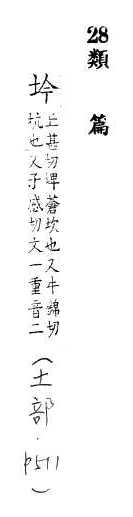 28類篇
坅
丘甚切埤蒼坎也又牛錦切
坑也又子感切文一重音二
(土部.p511)